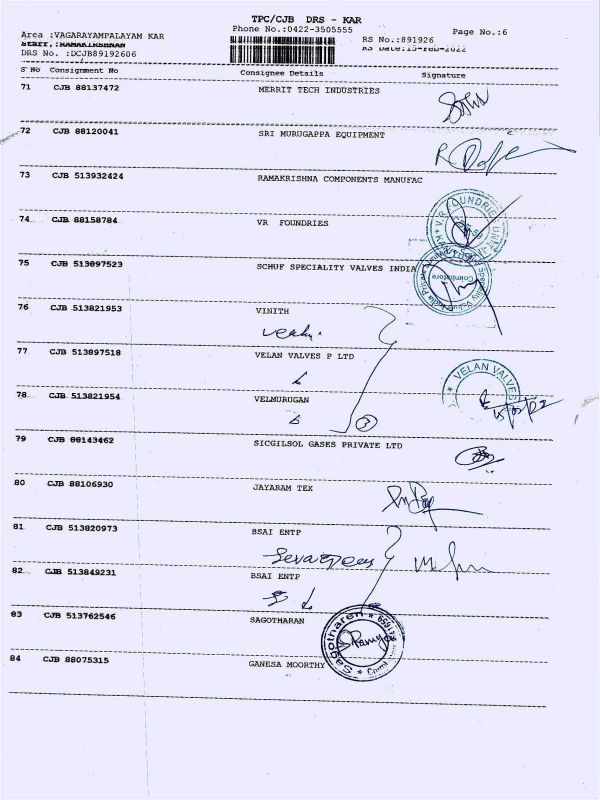 TPC/CJB DRS - KAR
Area :VAGARAYAMPALAYAM KAR Phone No.:0422-3505555 Page No.:6
Staff,:RAMAKIRSHNAN RS No.:891926
DRS No. :DCJB89192606 RS Date:15-Feb-2022
S No Consignment No Consignee Details Signature
71 CJB 88137472 MERRIT TECH INDUSTRIES
72 CJB 88120041 SRI MURUGAPPA EQUIPMENT
73 CJB 513932424 RAMAKRISHNA COMPONENTS MANUFAC
74 CJB 88158784 VR FOUNDRIES
V.R. FOUNDRIES UNIT
75 CJB 513897523 SCHUF SPECIALITY VALVES INDIA
Coimbatore
76 CJB 513821953 VINITH
77 CJB 513897518 VELAN VALVES P LTD
VELAN VALVES
78 CJB 513821954 VELMURUGAN
3
79 CJB 88143462 SICGILSOL GASES PRIVATE LTD
80 CJB 88106930 JAYARAM TEX
81 CJB 513820973 BSAI ENTP
82 CJB 513849231 BSAI ENTP
83 CJB 513762546 SAGOTHARAN
Sagotharen
84 CJB 88075315 GANESA MOORTHY